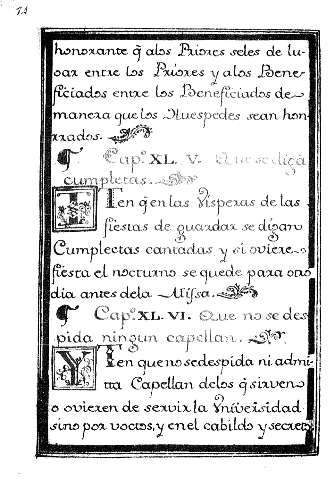 honorante q̃ alos Priores seles de lu-
gar entre los Priores y alos Bene-
ficiados entre los Beneficiados de
manera que los Huespedes sean hon-
rrados.
¶ Capº. XL. V. Que se digã
cumpletas.
ITen q̃ en las Visperas de las
fiestas de guardar se digan
Cumplectas cantadas y si oviere
fiesta el nocturno se quede para oro
dia antes dela Missa.
¶ Capº. XL. VI. Que no se des
pida ningun capellan.
YTen que no sedespida ni admi
tta Capellan delos q̃ sirven
o ovieren de servir la Vniversidad
sino por voctos, y en el cabildo y secreto